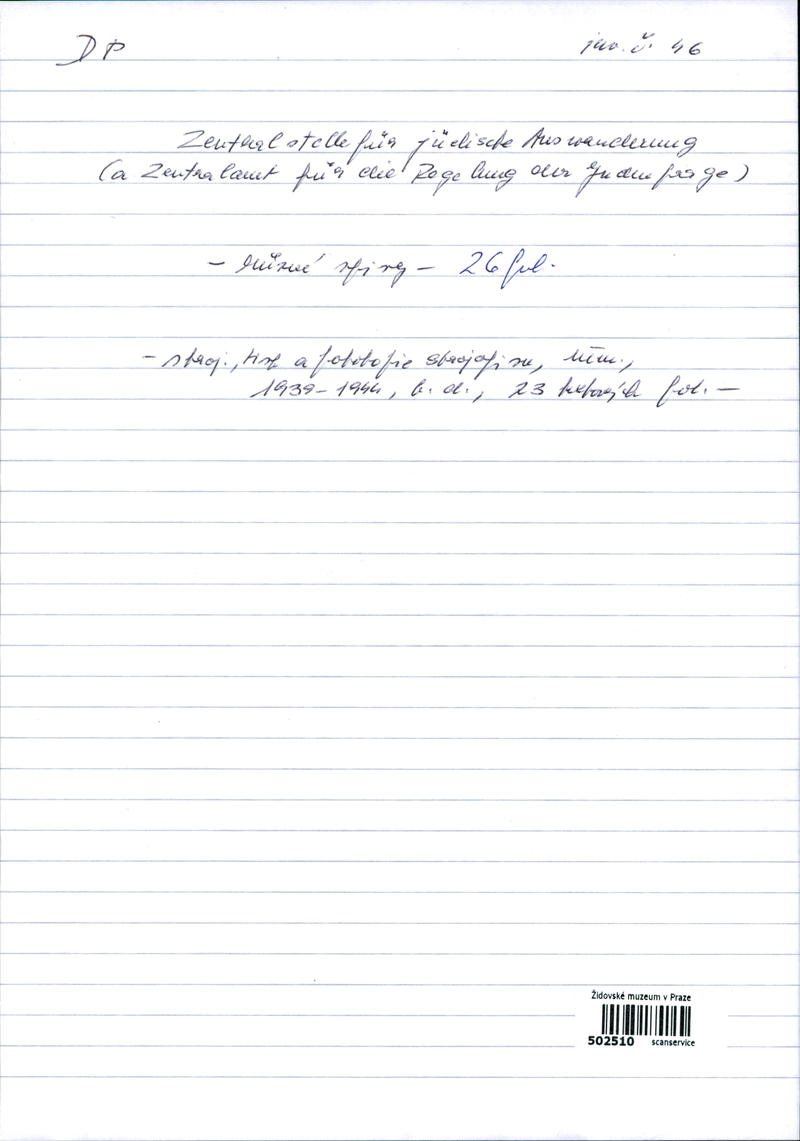 DP
inv. č. 46
Zentralstelle für jüdische Auswanderung
(a Zentralamt für die Regelung der Judenfrage)
– různé spisy – 26 fol.
– stroj., tisk a fotokopie strojopisu, něm.,
1939–1944, b. d., 23 textových fol. –
Židovské muzeum v Praze
502510 scanservice